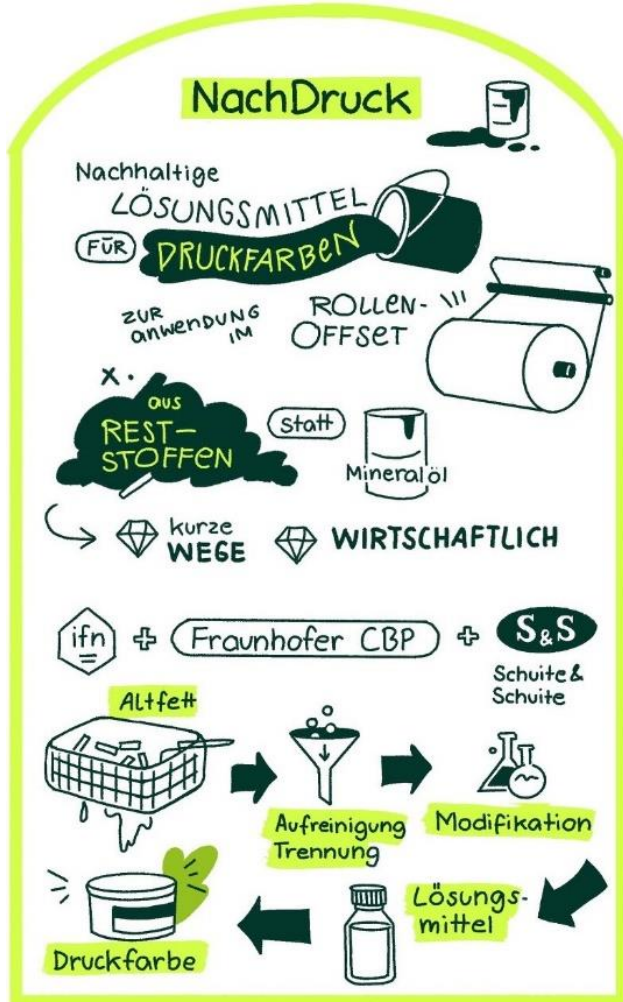 NachDruck
Nachhaltige
LÖSUNGSMITTEL
FÜR DRUCKFARBEN
ZUR
anwenDUNG
IM
ROLLEN-
OFFSET
aus
REST-
STOFFEN
statt
Mineralöl
kurze
WEGE
WIRTSCHAFTLICH
ifn + Fraunhofer CBP + S&S
Schuite &
Schuite
Altfett
Aufreinigung
Trennung
Modifikation
Lösungs-
mittel
Druckfarbe